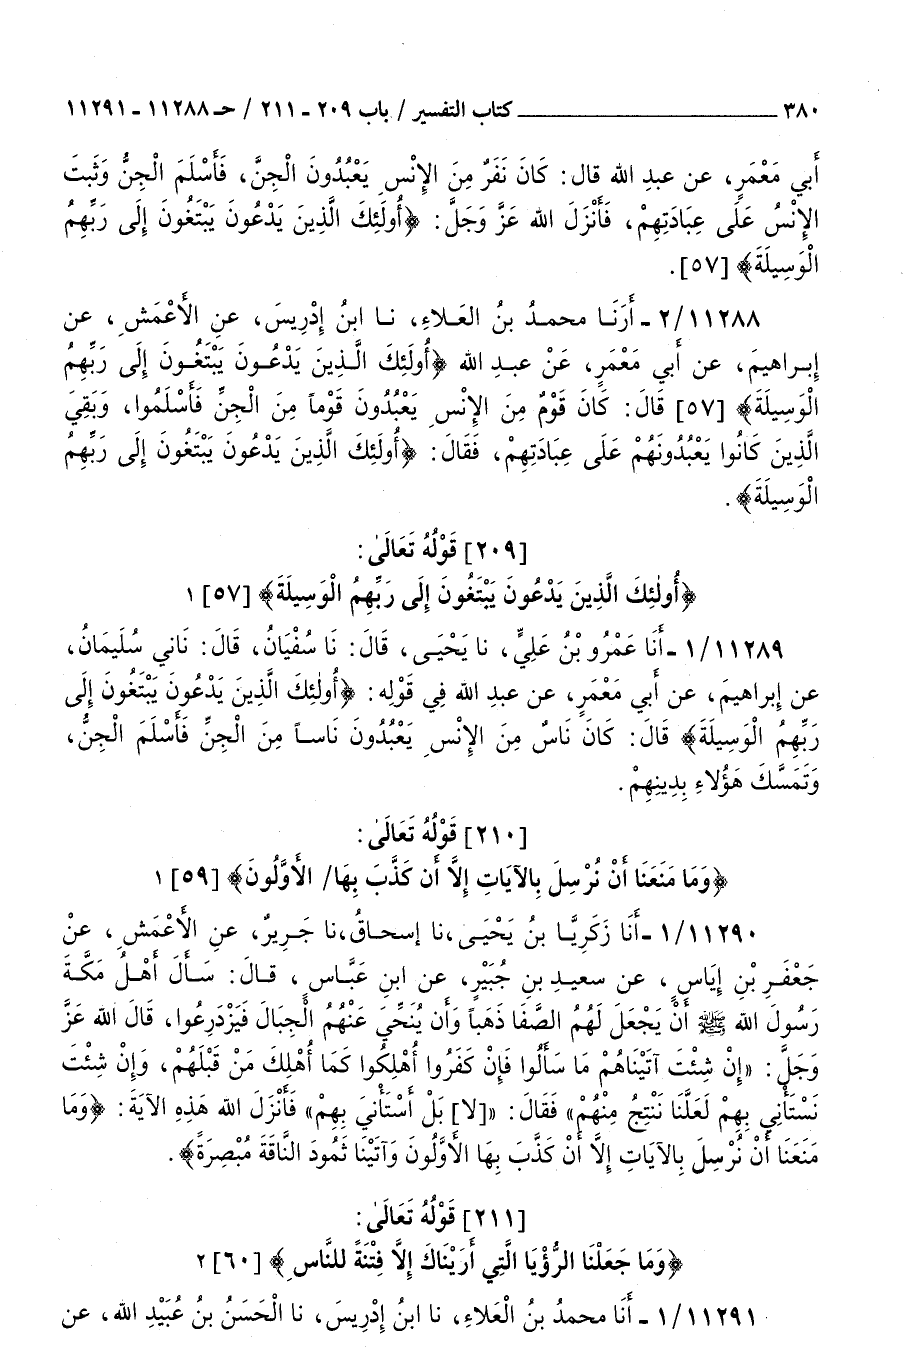 ٣٨٠ ــــــــــــــــــــ كتاب التفسير / باب ٢٠٩ ـ ٢١١ / حـ ١١٢٨٨ ـ ١١٢٩١
أَبي مَعْمَرٍ، عن عبدِ الله قال: كَانَ نَفَرٌ مِنَ الإِنْسِ يَعْبُدُونَ الْجِنَّ، فَأَسْلَمَ الْجِنُّ وَثَبتَ
الإِنْسُ عَلَى عِبَادَتِهِمْ، فَأَنْزَلَ الله عَزَّ وَجَلَّ: ﴿أُولَئِكَ الَّذِينَ يَدْعُونَ يَبْتَغُونَ إِلَى رَبِّهِمُ
الْوَسِيلَةَ﴾ [٥٧].
٢/١١٢٨٨ ـ أَرَنَا محمدُ بنُ العَلاءِ، نا ابنُ إدْرِيسَ، عنِ الأَعْمَشِ، عن
إبراهيمَ، عن أَبي مَعْمَرٍ، عَنْ عبدِ الله ﴿أُولَئِكَ الَّذِينَ يَدْعُونَ يَبْتَغُونَ إِلَى رَبِّهِمُ
الْوَسِيلَةَ﴾ [٥٧] قَالَ: كَانَ قَوْمٌ مِنَ الإِنْسِ يَعْبُدُونَ قَوْماً مِنَ الْجِنِّ فَأَسْلَمُوا، وَبَقِيَ
الَّذِينَ كَانُوا يَعْبُدُونَهُمْ عَلَى عِبَادَتِهِمْ، فَقَالَ: ﴿أُولَئِكَ الَّذِينَ يَدْعُونَ يَبْتَغُونَ إِلَى رَبِّهِمُ
الْوَسِيلَةَ﴾.
[٢٠٩] قَوْلُهُ تَعَالَىٰ:
﴿أُولَئِكَ الَّذِينَ يَدْعُونَ يَبْتَغُونَ إِلَى رَبِّهِمُ الْوَسِيلَةَ﴾ [٥٧] ١
١/١١٢٨٩ ـ أَنَا عَمْرُو بْنُ عَلِيٍّ، نا يَحْيَى، قَالَ: نَا سُفْيَانُ، قَالَ: نَاني سُلَيمَانُ،
عن إبراهيمَ، عن أَبي مَعْمَرٍ، عن عبدِ الله فِي قَوْلِهِ: ﴿أُولَئِكَ الَّذِينَ يَدْعُونَ يَبْتَغُونَ إِلَى
رَبِّهِمُ الْوَسِيلَةَ﴾ قَالَ: كَانَ نَاسٌ مِنَ الإِنْسِ يَعْبُدُونَ نَاساً مِنَ الْجِنِّ فَأَسْلَمَ الْجِنُّ،
وَتَمَسَّكَ هَؤُلاءِ بِدِينِهِمْ.
[٢١٠] قَوْلُهُ تَعَالَىٰ:
﴿وَمَا مَنَعَنَا أَنْ نُرْسِلَ بِالآيَاتِ إِلاَّ أَن كَذَّبَ بِهَا/ الأَوَّلُونَ﴾ [٥٩] ١
١/١١٢٩٠ ـ أَنَا زَكَرِيَّا بنُ يَحْيَى، نا إسحاقُ، نا جَرِيرٌ، عنِ الأَعْمَشِ، عَنْ
جَعْفَرِ بْنِ إِيَاسٍ، عن سعيدِ بنِ جُبَيْرٍ، عن ابنِ عَبَّاسٍ، قالَ: سَأَلَ أَهْلُ مَكَّةَ
رَسُولَ الله ﷺ أَنْ يَجْعَلَ لَهُمُ الصَّفَا ذَهَباً وَأَن يُنَحِّيَ عَنْهُمُ الْجِبَالَ فَيَزْدَرِعُوا، قَالَ الله عَزَّ
وَجَلَّ: «إِنْ شِئْتَ آتَيْنَاهُمْ مَا سَأَلُوا فَإِنْ كَفَرُوا أُهْلِكُوا كَمَا أُهْلِكَ مَنْ قَبْلَهُمْ، وَإِنْ شِئْتَ
نَسْتَأْنِي بِهِمْ لَعَلَّنَا نَنْتِجُ مِنْهُمْ» فَقَالَ: «[لا] بَلْ أَسْتَأْنيَ بِهِمْ» فَأَنْزَلَ الله هَذِهِ الآيَةَ: ﴿وَمَا
مَنَعَنَا أَنْ نُرْسِلَ بِالآيَاتِ إِلاَّ أَنْ كَذَّبَ بِهَا الأَوَّلُونَ وَآتَيْنَا ثَمُودَ النَّاقَةَ مُبْصِرَةً﴾.
[٢١١] قَوْلُهُ تَعَالَىٰ:
﴿وَمَا جَعَلْنَا الرُّؤْيَا الَّتِي أَرَيْنَاكَ إِلاَّ فِتْنَةً للنَّاسِ﴾ [٦٠] ٢
١/١١٢٩١ ـ أَنَا محمدُ بنُ الْعَلاءِ، نا ابنُ إدْرِيسَ، نا الْحَسَنُ بنُ عُبَيْدِ الله، عن